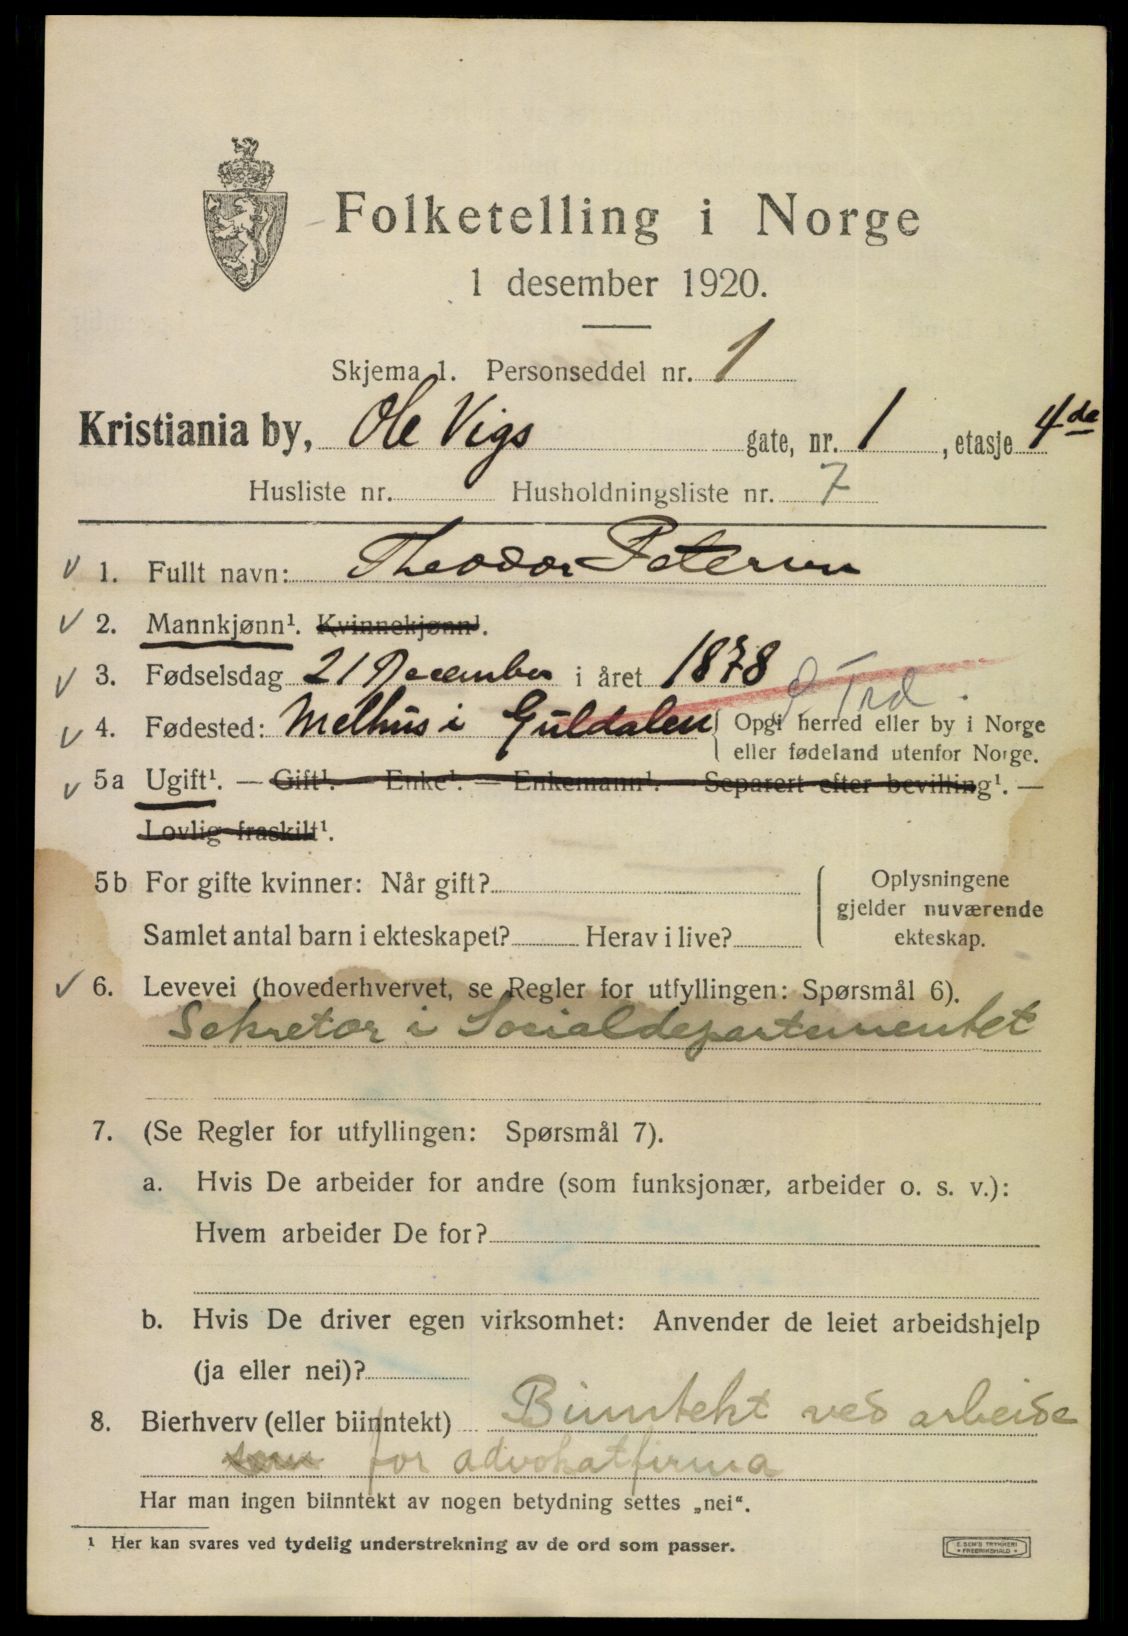 Folketelling i Norge
1 desember 1920.
Skjema 1. Personseddel nr. 1
Kristiania by, Ole Vigs gate, nr. 1, etasje 4de
Husliste nr. Husholdningsliste nr. 7
1. Fullt navn: Theodor Petersen
2. Mannkjønn¹. Kvinnekjønn¹.
3. Fødselsdag 21 December i året 1878
S. Trd.
4. Fødested: Melhus i Guldalen Opgi herred eller by i Norge
eller fødeland utenfor Norge.
5a Ugift¹. — Gift¹. — Enke¹. — Enkemann¹. — Separert efter bevilling¹. —
Lovlig fraskilt¹.
5b For gifte kvinner: Når gift? Oplysningene
gjelder nuværende
Samlet antal barn i ekteskapet? Herav i live? ekteskap.
6. Levevei (hovederhvervet, se Regler for utfyllingen: Spørsmål 6).
Sekretær i Socialdepartementet
7. (Se Regler for utfyllingen: Spørsmål 7).
a. Hvis De arbeider for andre (som funksjonær, arbeider o. s. v.):
Hvem arbeider De for?
b. Hvis De driver egen virksomhet: Anvender de leiet arbeidshjelp
(ja eller nei)?
8. Bierhverv (eller biinntekt) Biinntekt ved arbeide
som for advokatfirma
Har man ingen biinntekt av nogen betydning settes „nei“.
¹ Her kan svares ved tydelig understrekning av de ord som passer.
E. SEM'S TRYKKERI
• FREDRIKSHALD •